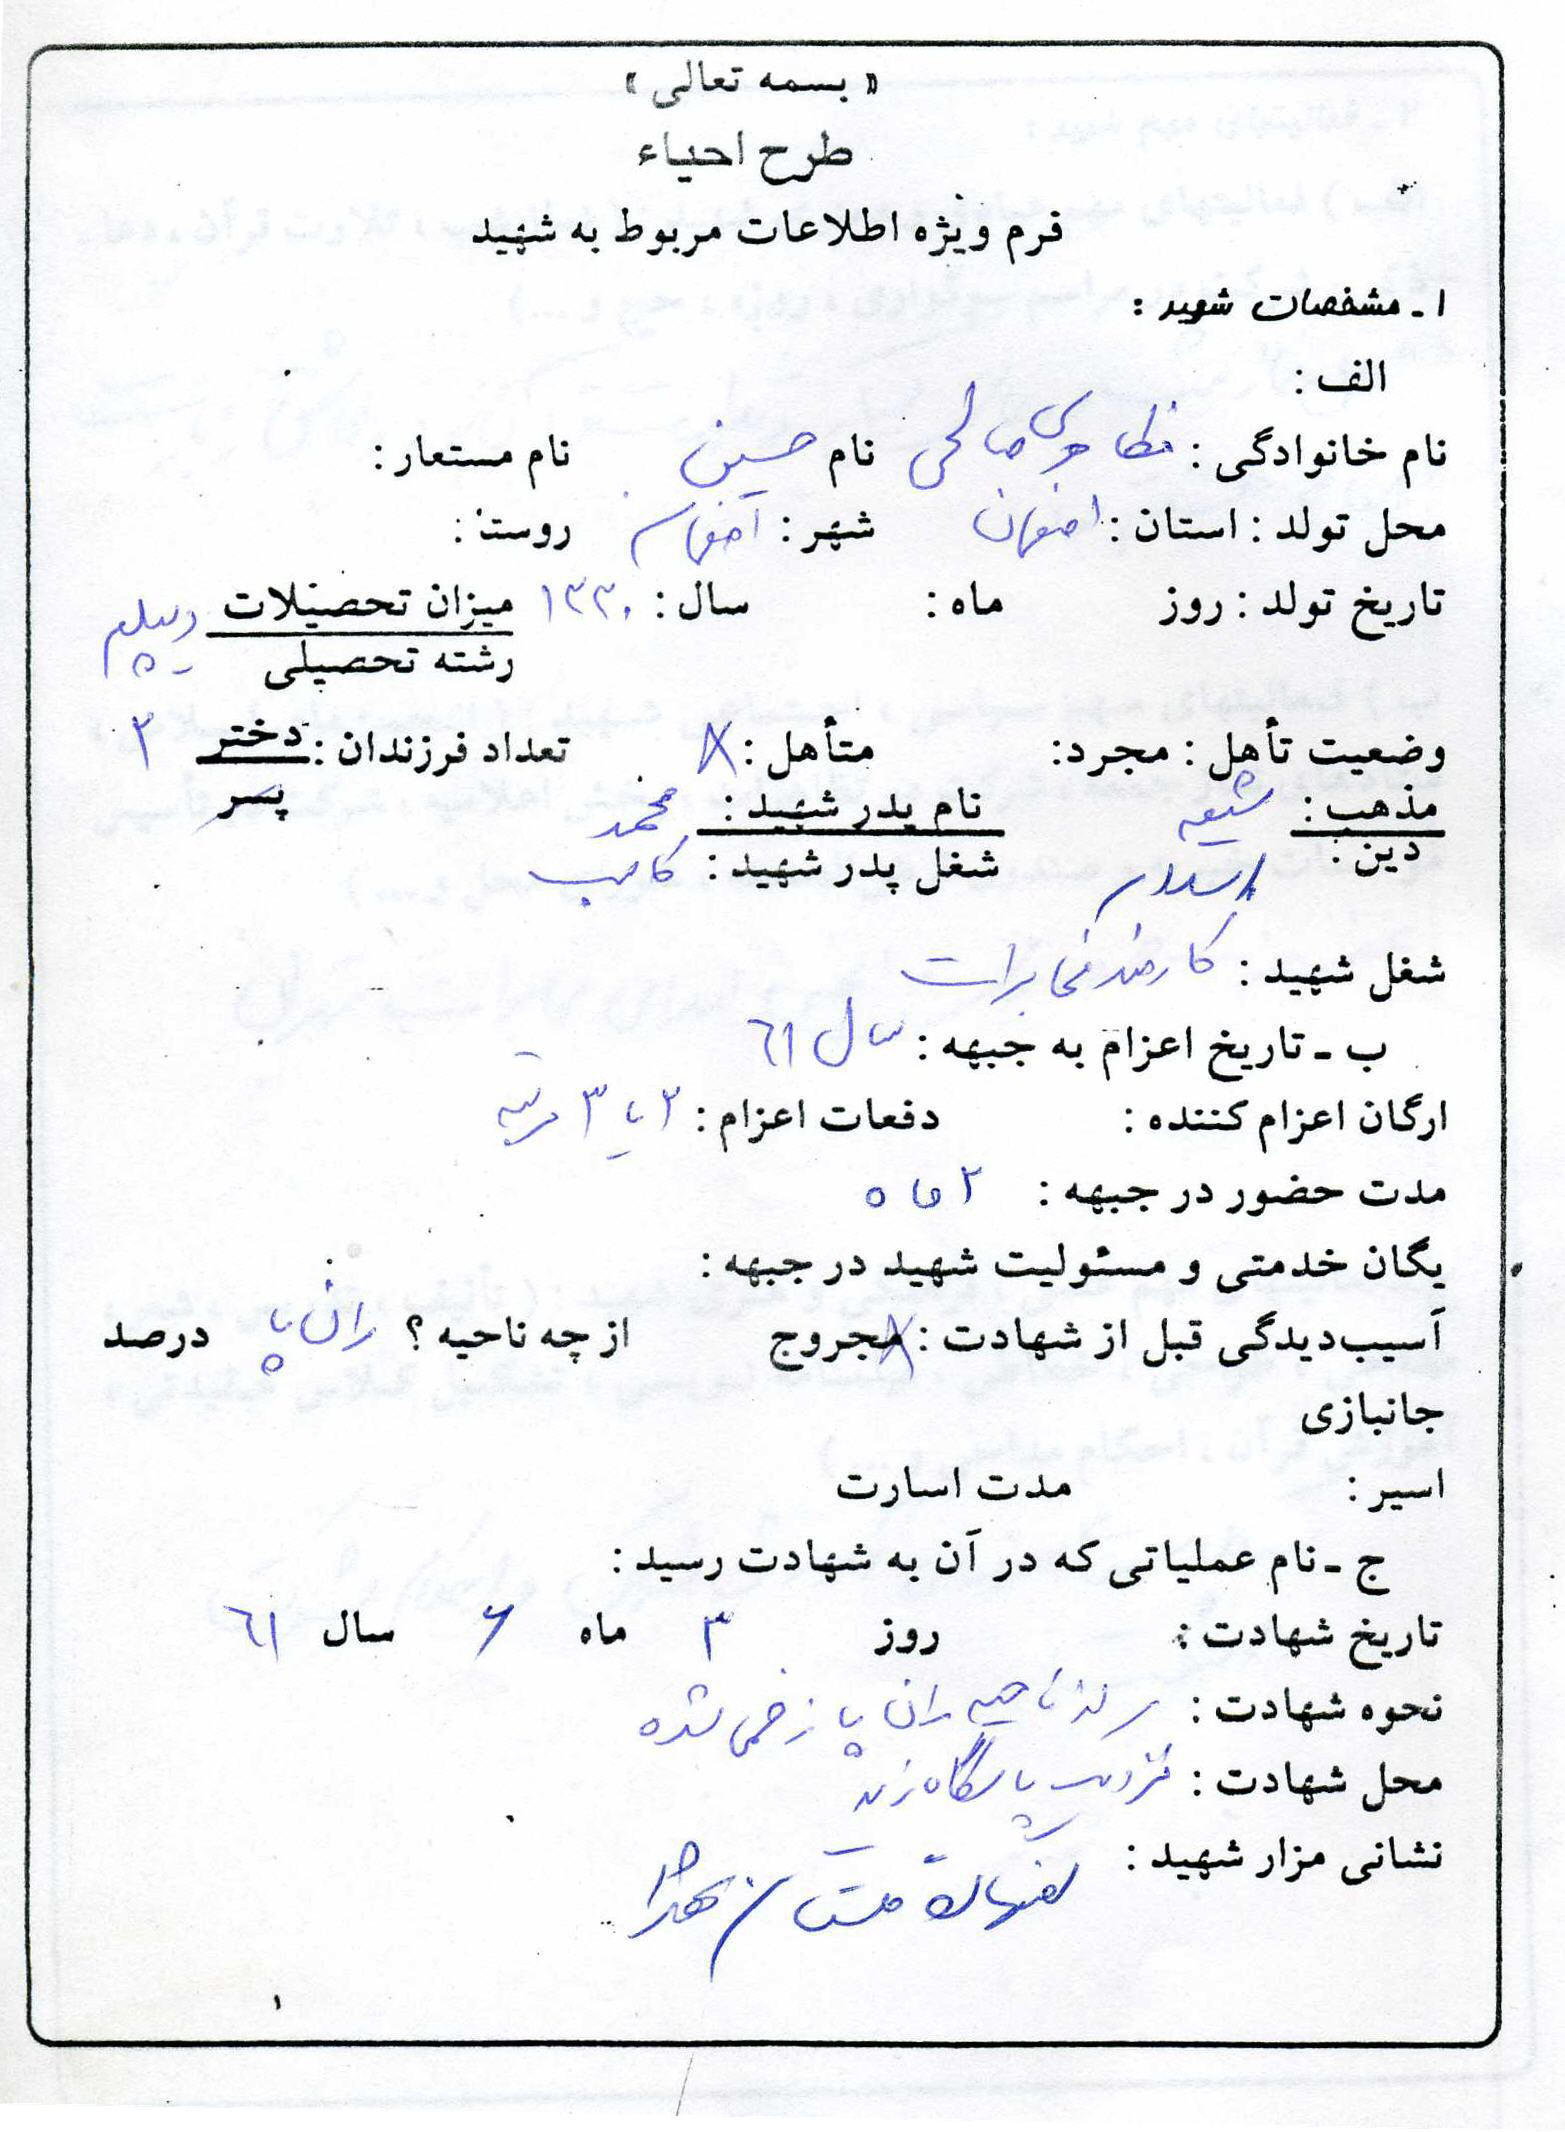 « بسمه تعالی »
طرح احیاء
فرم ویژه اطلاعات مربوط به شهید
۱ـ مشخصات شهید :
الف :
نام خانوادگی : صالحی نام حسین نام مستعار :
محل تولد : استان : اصفهان شهر : اصفهان روستا :
تاریخ تولد : روز ماه : سال : ۱۳۳۰ میزان تحصیلات دیپلم
رشته تحصیلی
وضعیت تأهل : مجرد: متأهل : X تعداد فرزندان : دختر ۲
پسر
مذهب : شیعه نام پدر شهید : محمد
دین : اسلام شغل پدر شهید : کاسب
شغل شهید : کارمند مخابرات
ب ـ تاریخ اعزام به جبهه : سال ٦۱
ارگان اعزام کننده : دفعات اعزام : ۲ یا ۳ مرتبه
مدت حضور در جبهه : ۲ ماه
یگان خدمتی و مسئولیت شهید در جبهه :
آسیب‌دیدگی قبل از شهادت : مجروح X از چه ناحیه ؟ ران پا درصد
جانبازی
اسیر : مدت اسارت
ج ـ نام عملیاتی که در آن به شهادت رسید :
تاریخ شهادت : روز ۳ ماه ۶ سال ٦۱
نحوه شهادت : از ناحیه ران پا زخمی شده
محل شهادت : پاسگاه زید
نشانی مزار شهید : اصفهان گلستان شهدا
۱